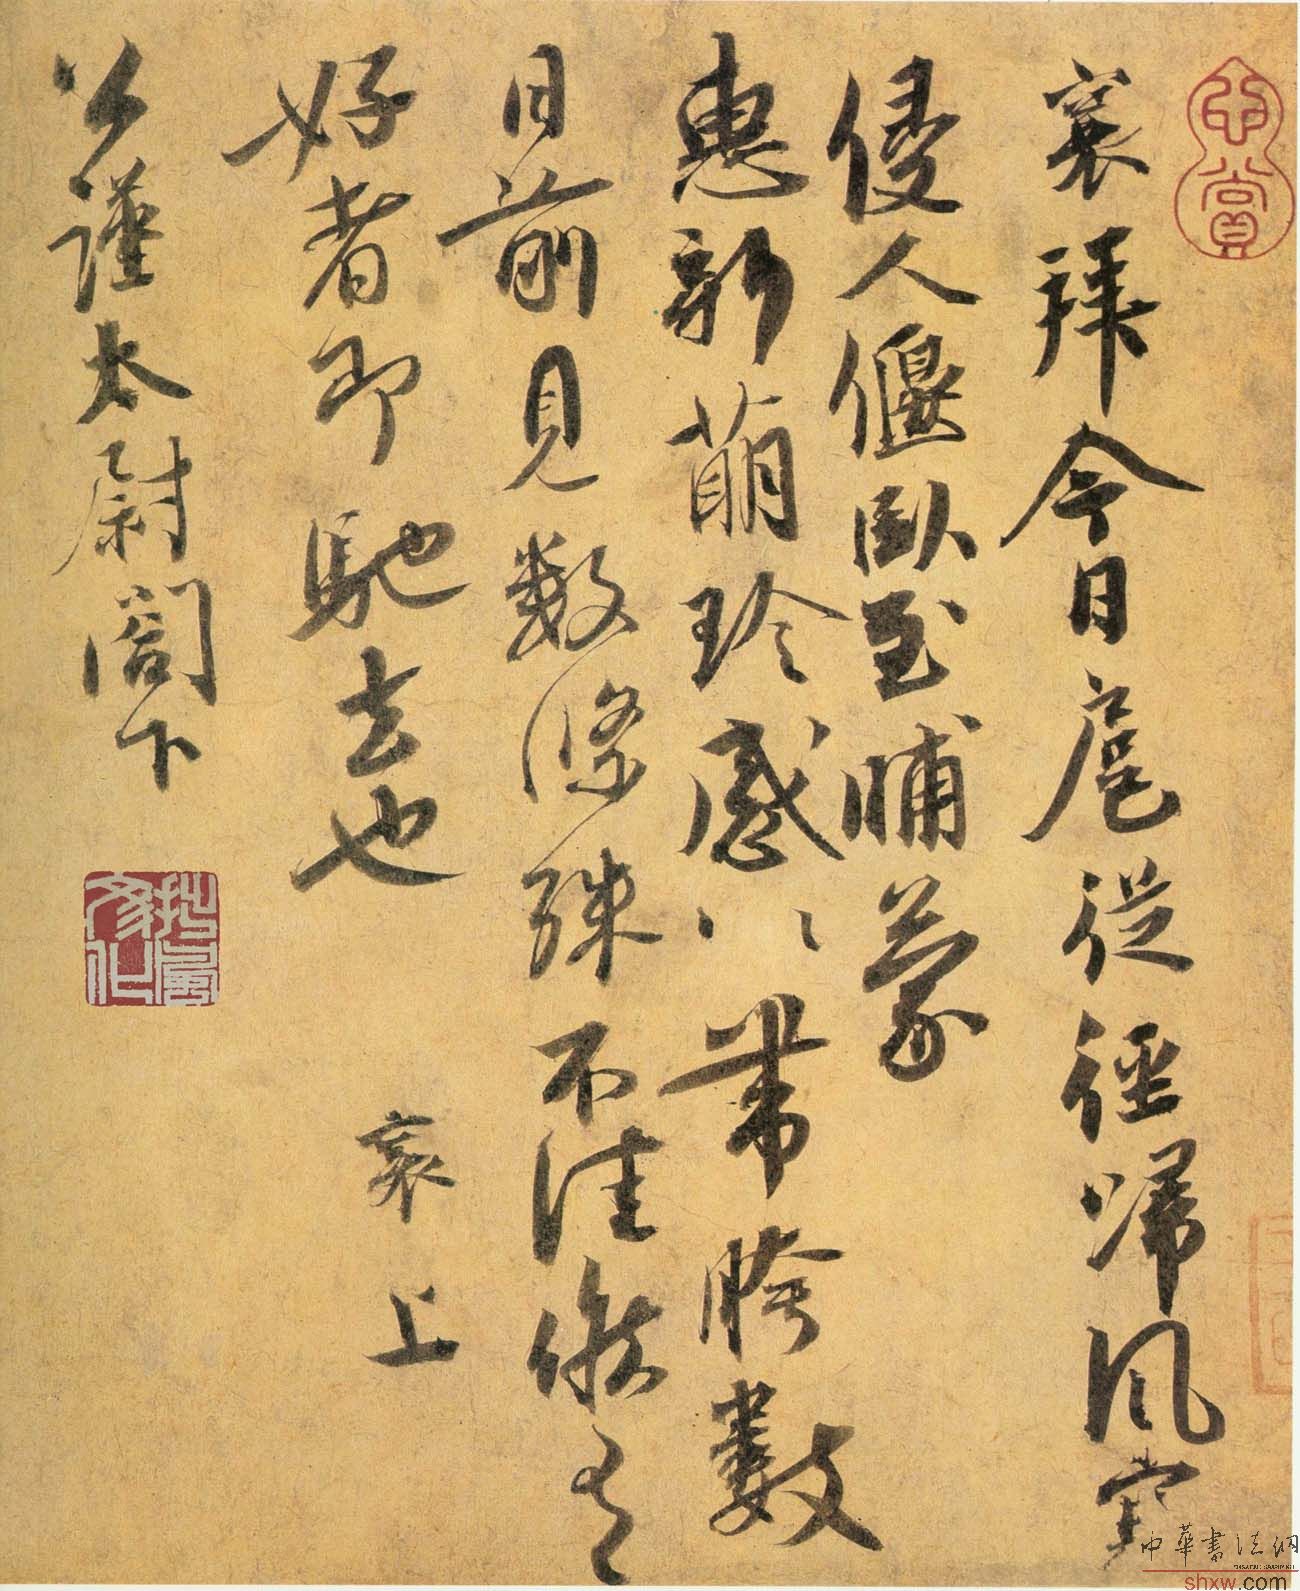 襄拜今日扈從徑歸風寒
侵人偃臥至晡蒙
惠新萌珍感珍感帶胯數
日前見數條殊不佳候有
好者即馳去也
襄上
公謹太尉閤下
中華書法網
shxw.com